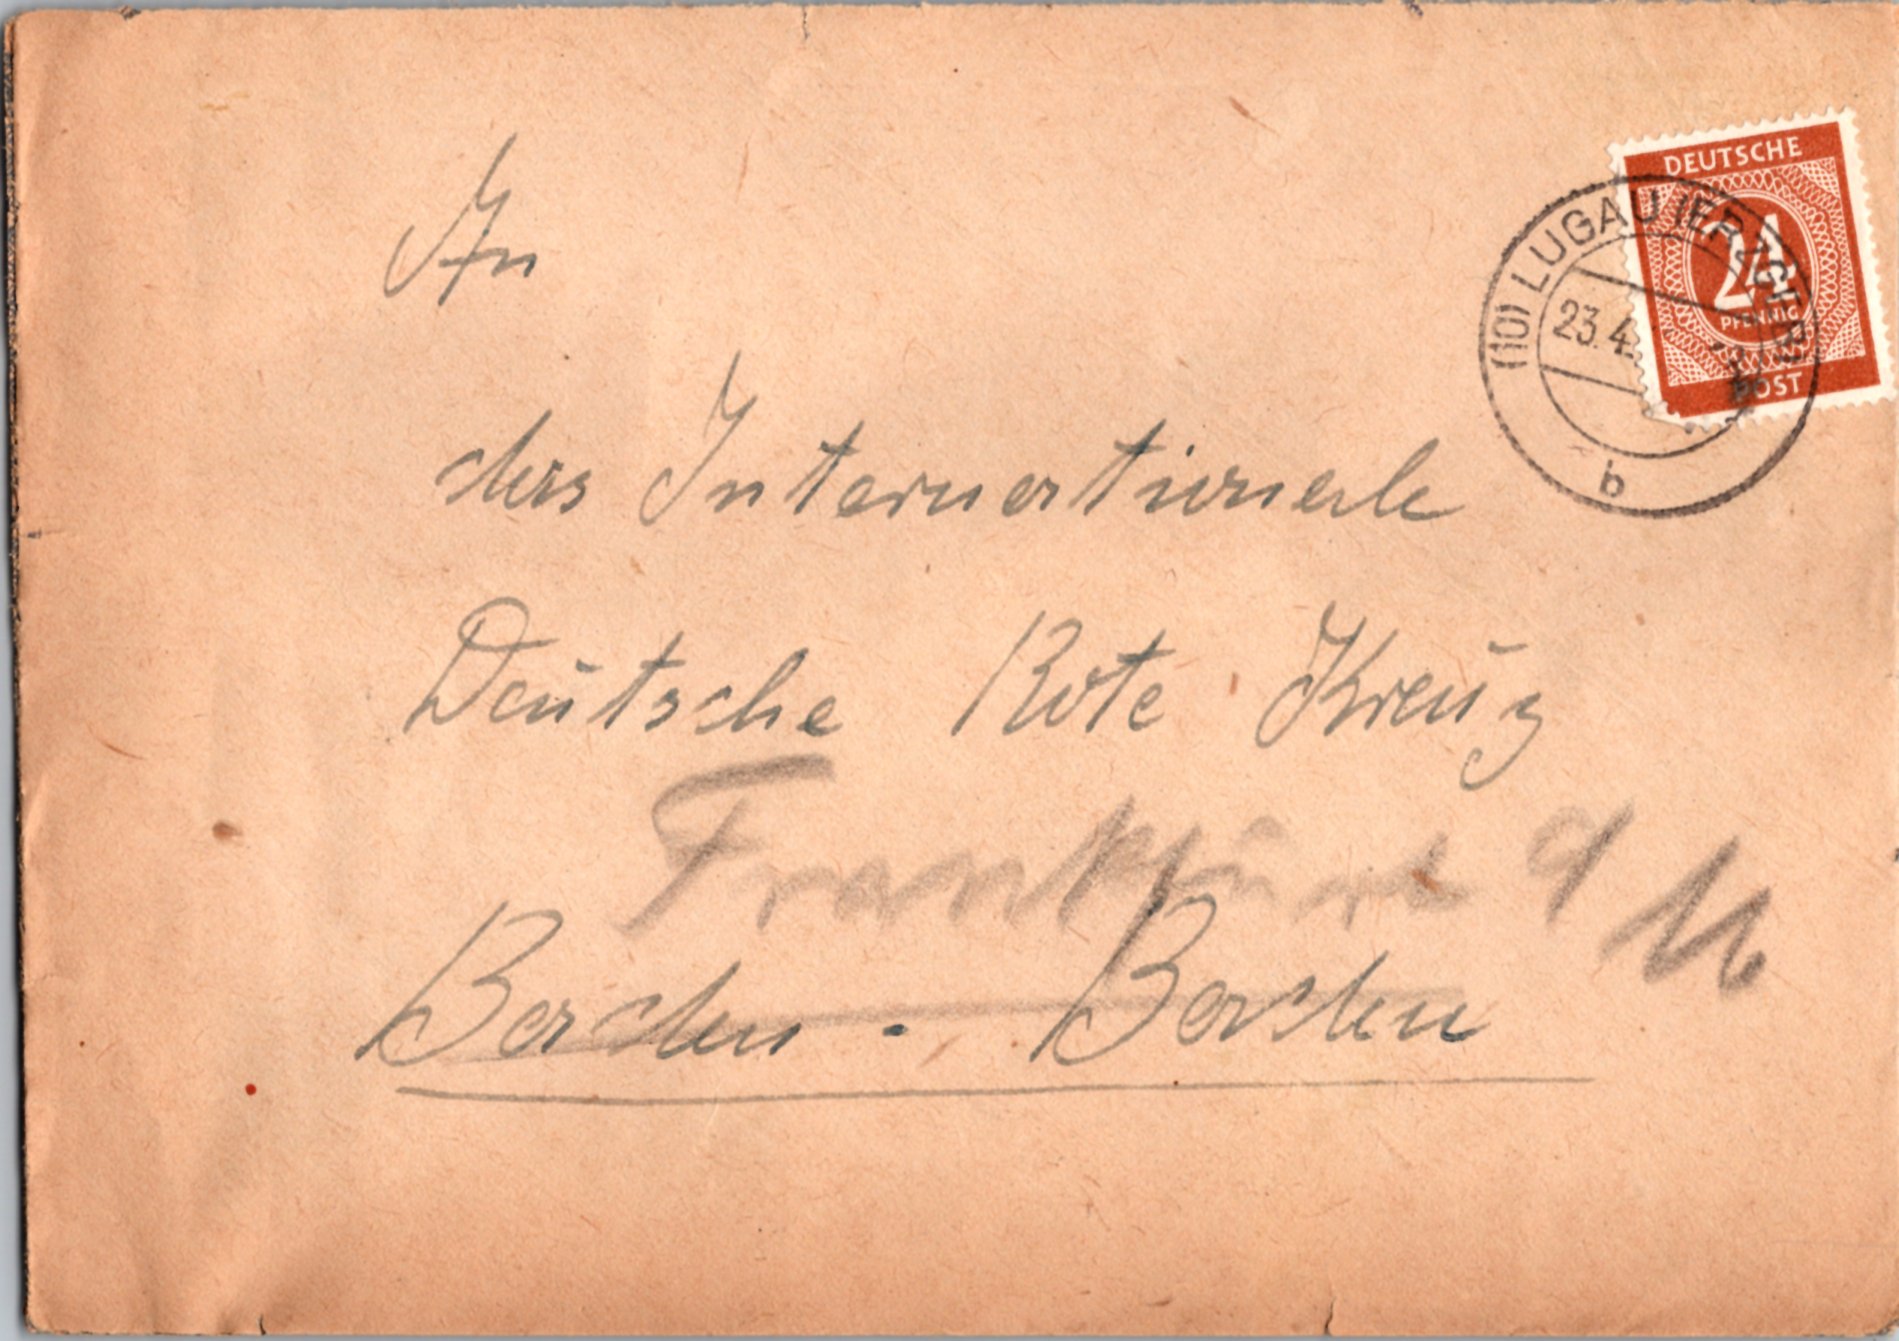 DEUTSCHE
24
PFENNIG
POST
(10) LUGAU (ERZGEB)
23.4.
b
An
das Internationale
Deutsche Rote Kreuz
Frankfurt a/M
Baden. Baden